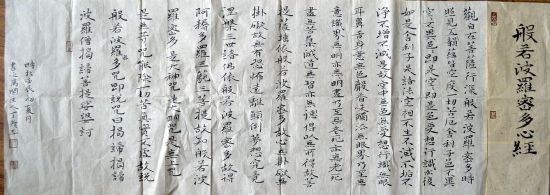 般若波羅蜜多心經
觀自在菩薩行深般若波羅蜜多時
照見五蘊皆空度一切苦厄舍利子色不異
空空不異色色即是空空即是色受想行識亦復
如是舍利子是諸法空相不生不滅不垢不
淨不增不減是故空中無色無受想行識無眼
耳鼻舌身意無色聲香味觸法無眼界乃至無
意識界無無明亦無無明盡乃至無老死亦無老死
盡無苦集滅道無智亦無得以無所得故菩
提薩埵依般若波羅蜜多故心無掛礙無
掛礙故無有恐怖遠離顛倒夢想究竟
涅槃三世諸佛依般若波羅蜜多故得
阿耨多羅三藐三菩提故知般若波
羅蜜多是大神咒是大明咒是無上咒
是無等等咒能除一切苦真實不虛故說
般若波羅蜜多咒即說咒曰揭諦揭諦
波羅僧揭諦菩提薩婆訶